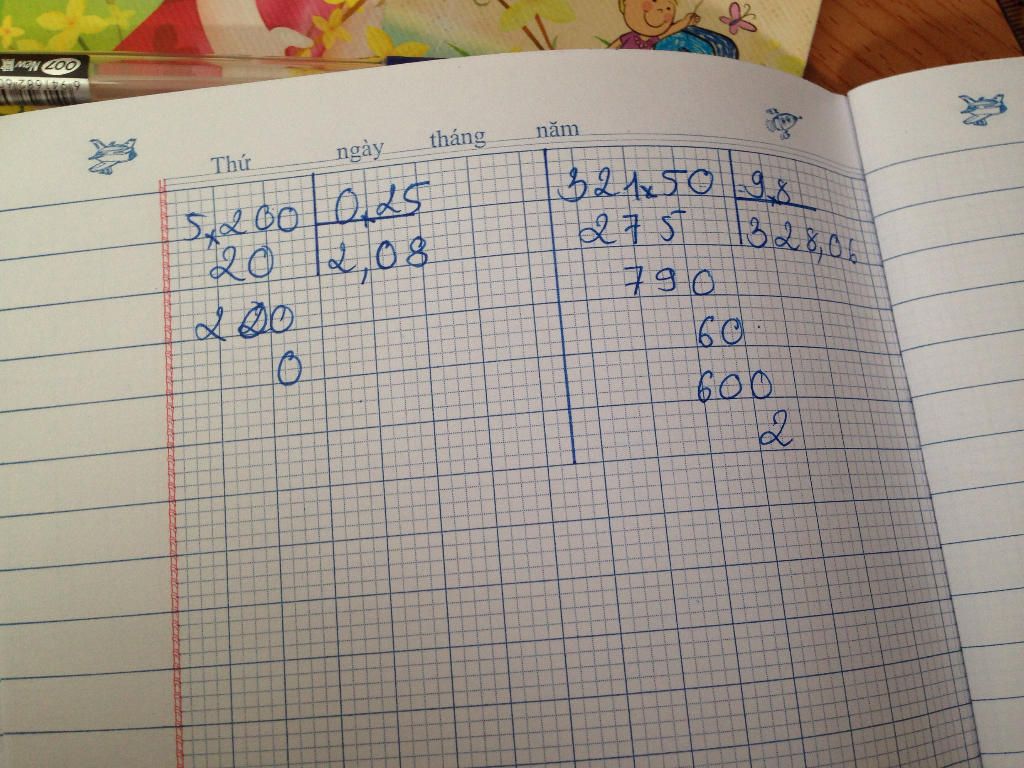 Thứ ngày tháng năm
5,200 0,25
20 2,08
200
0
321,50 9,8
275 328,06
790
60
600
2
007 New